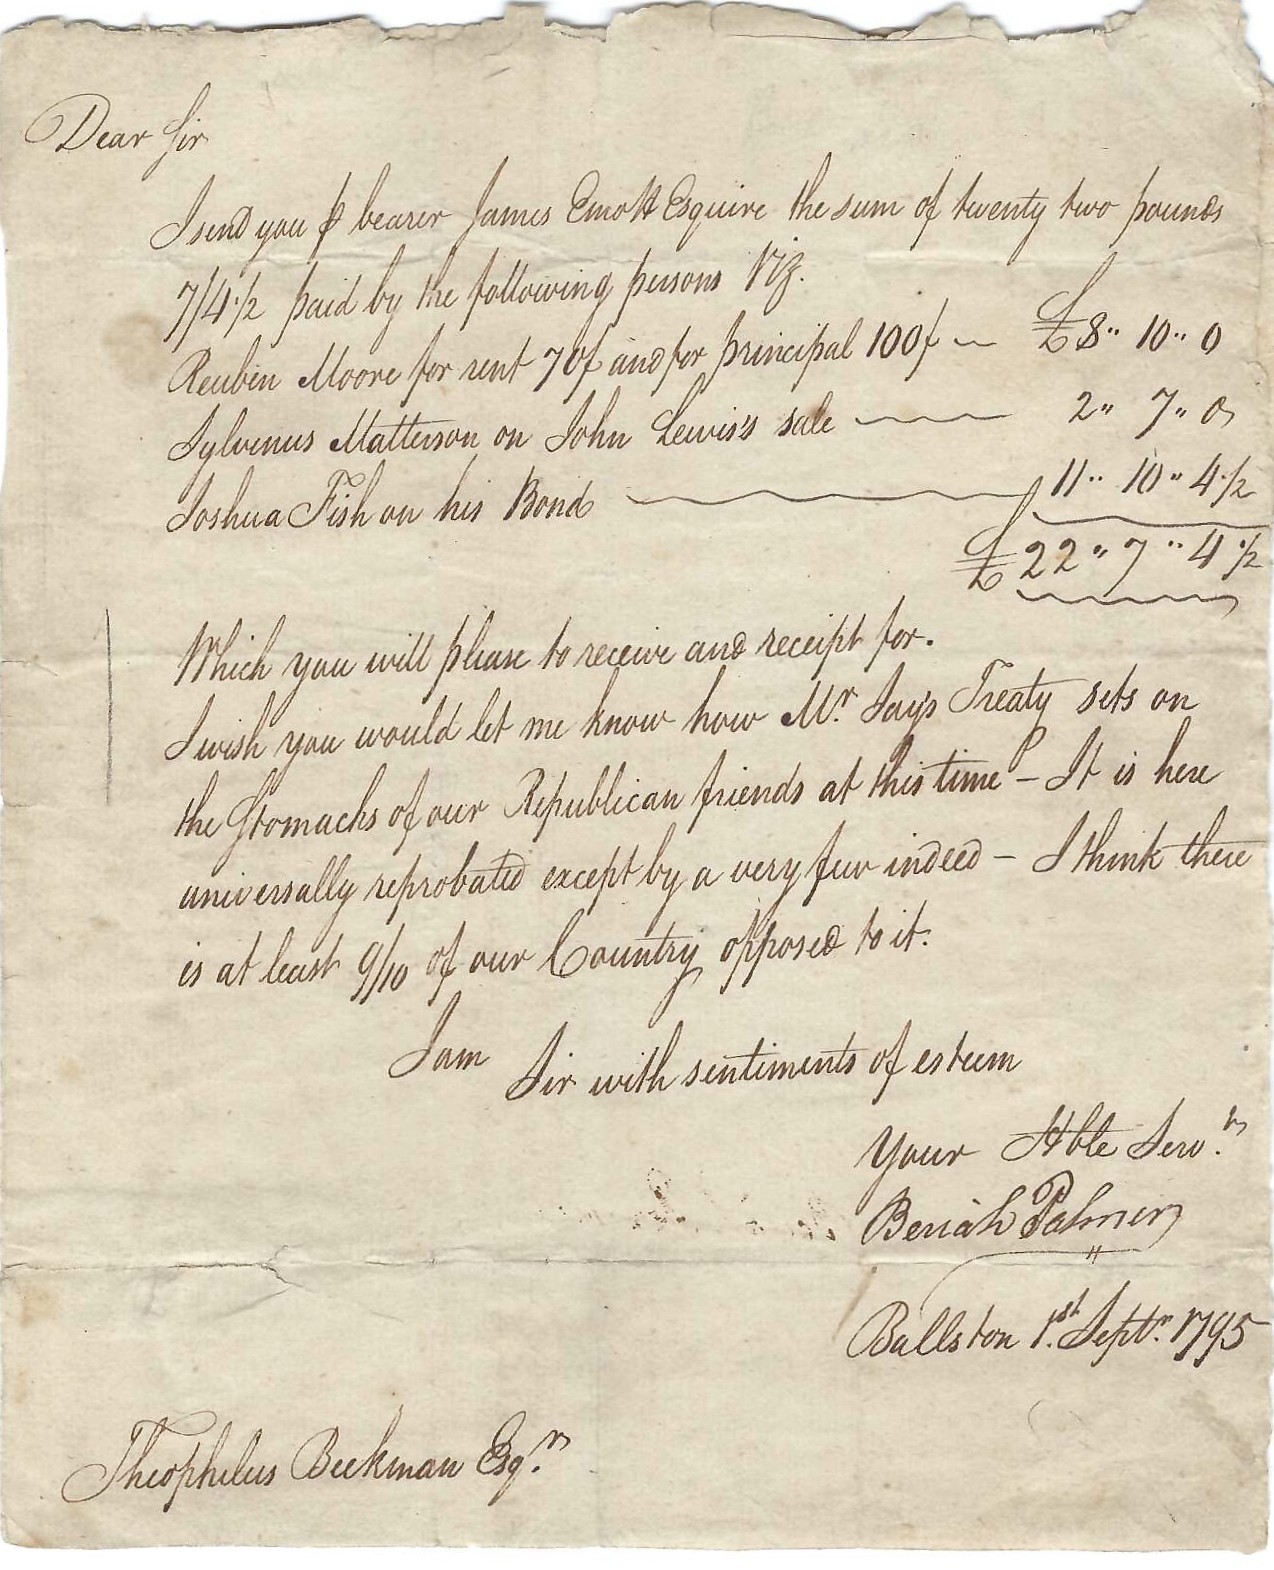 Dear Sir
I send you ⅌ bearer James Emott Esquire the sum of twenty two pounds
7/4·½ paid by the following persons Viz.
Reuben Moore for rent 70/ and for principal 100/ — £8" 10" 0
Sylvenus Matterson on John Lewis's sale — 2" 7" 0
Joshua Fish on his Bond — 11" 10" 4·½
£22" 7" 4·½
Which you will please to receive and receipt for.
I wish you would let me know how Mr. Jay's Treaty sets on
the Stomachs of our Republican friends at this time? – It is here
universally reprobated except by a very few indeed – I think there
is at least 9/10 of our Country opposed to it.
I am Sir with sentiments of esteem
Your Hble Serv.t
Beriah Palmer
Ballston 1st. Septr. 1795
Theophilus Beekman Esqr.